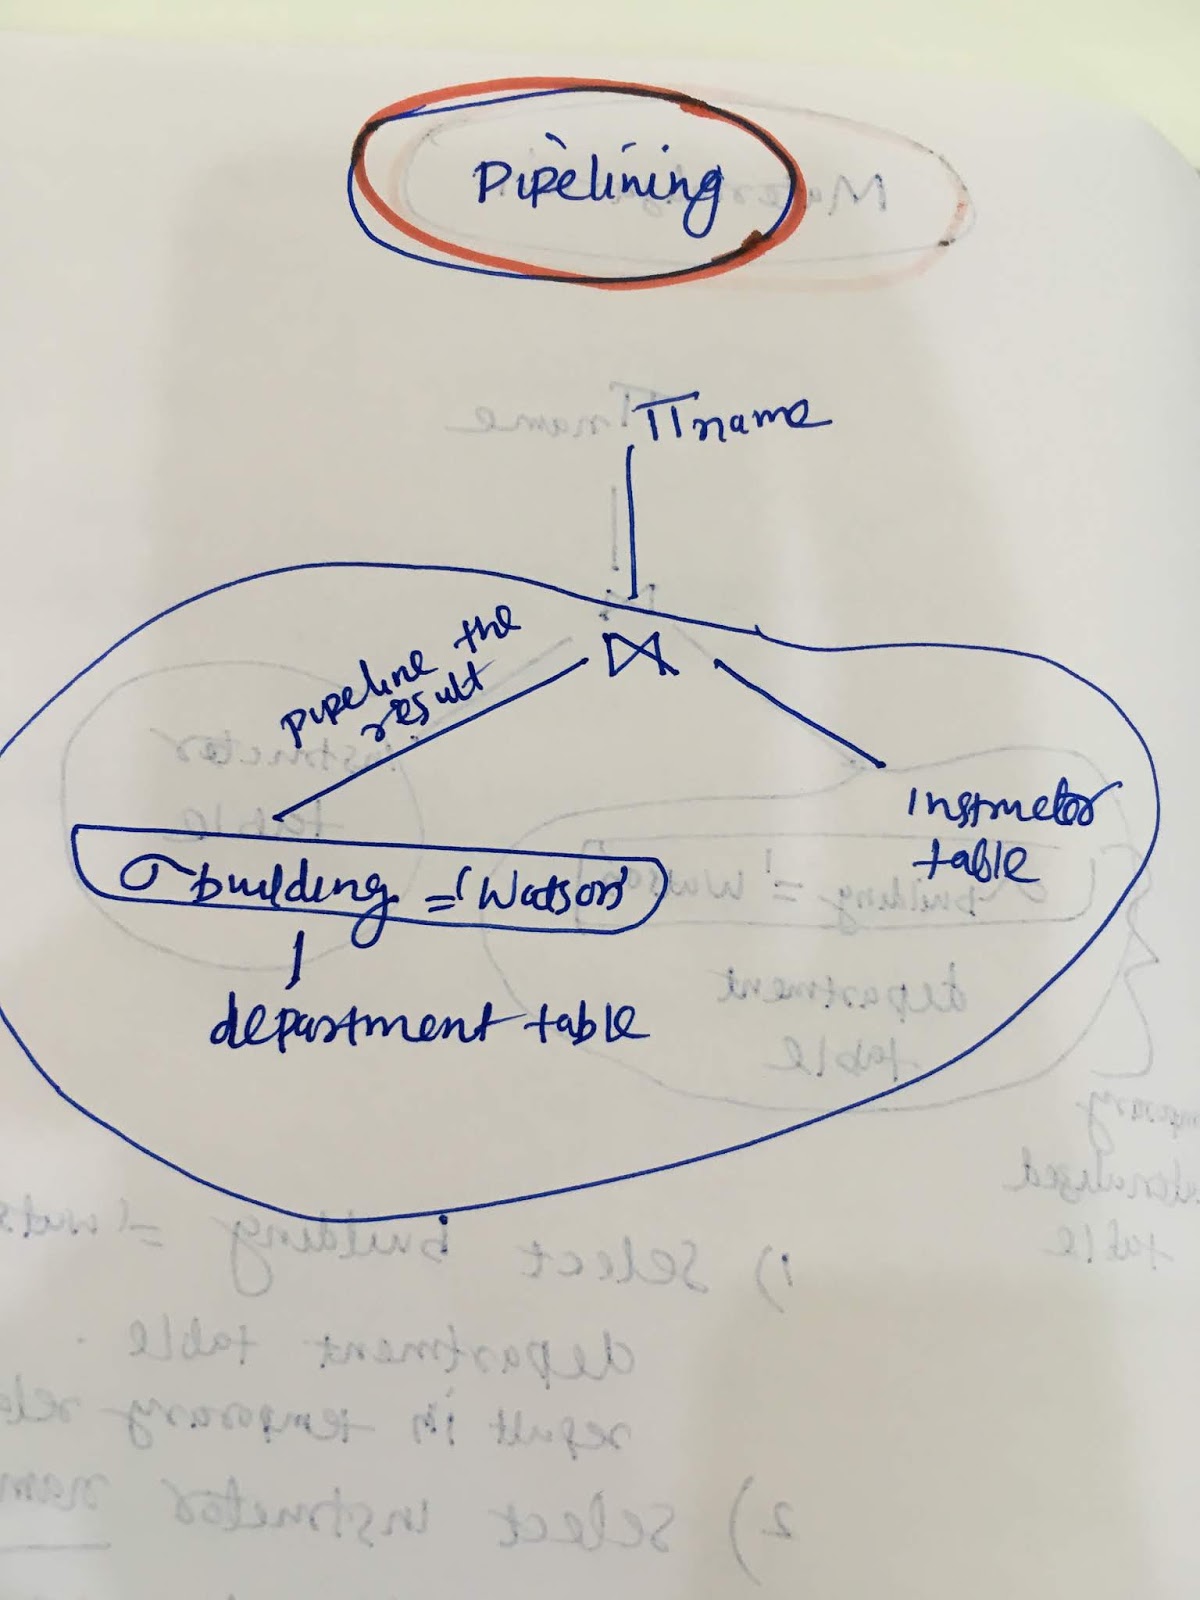 Pipelining
πname
pipeline the
result
⋈
Instructor
table
σbuilding = 'Watson'
department table